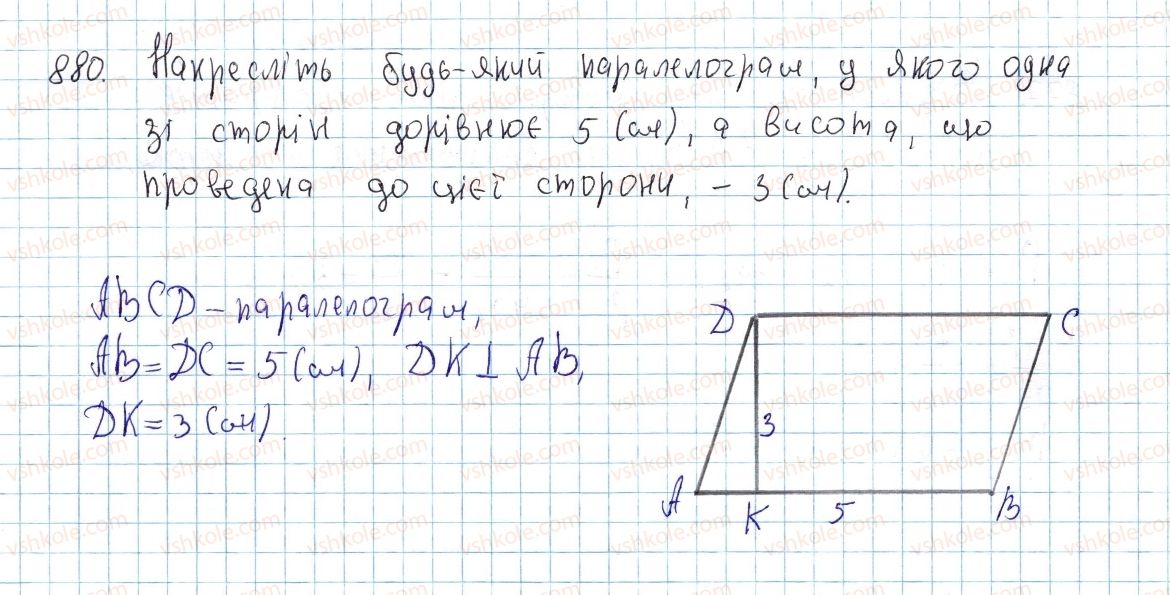 880. Накресліть будь-який паралелограм, у якого одна
зі сторін дорівнює 5 (см), а висота, що
проведена до цієї сторони, – 3 (см).
ABCD – паралелограм,
AB = DC = 5 (см), DK ⊥ AB,
DK = 3 (см).
D C
3
A K 5 B
vshkole.com